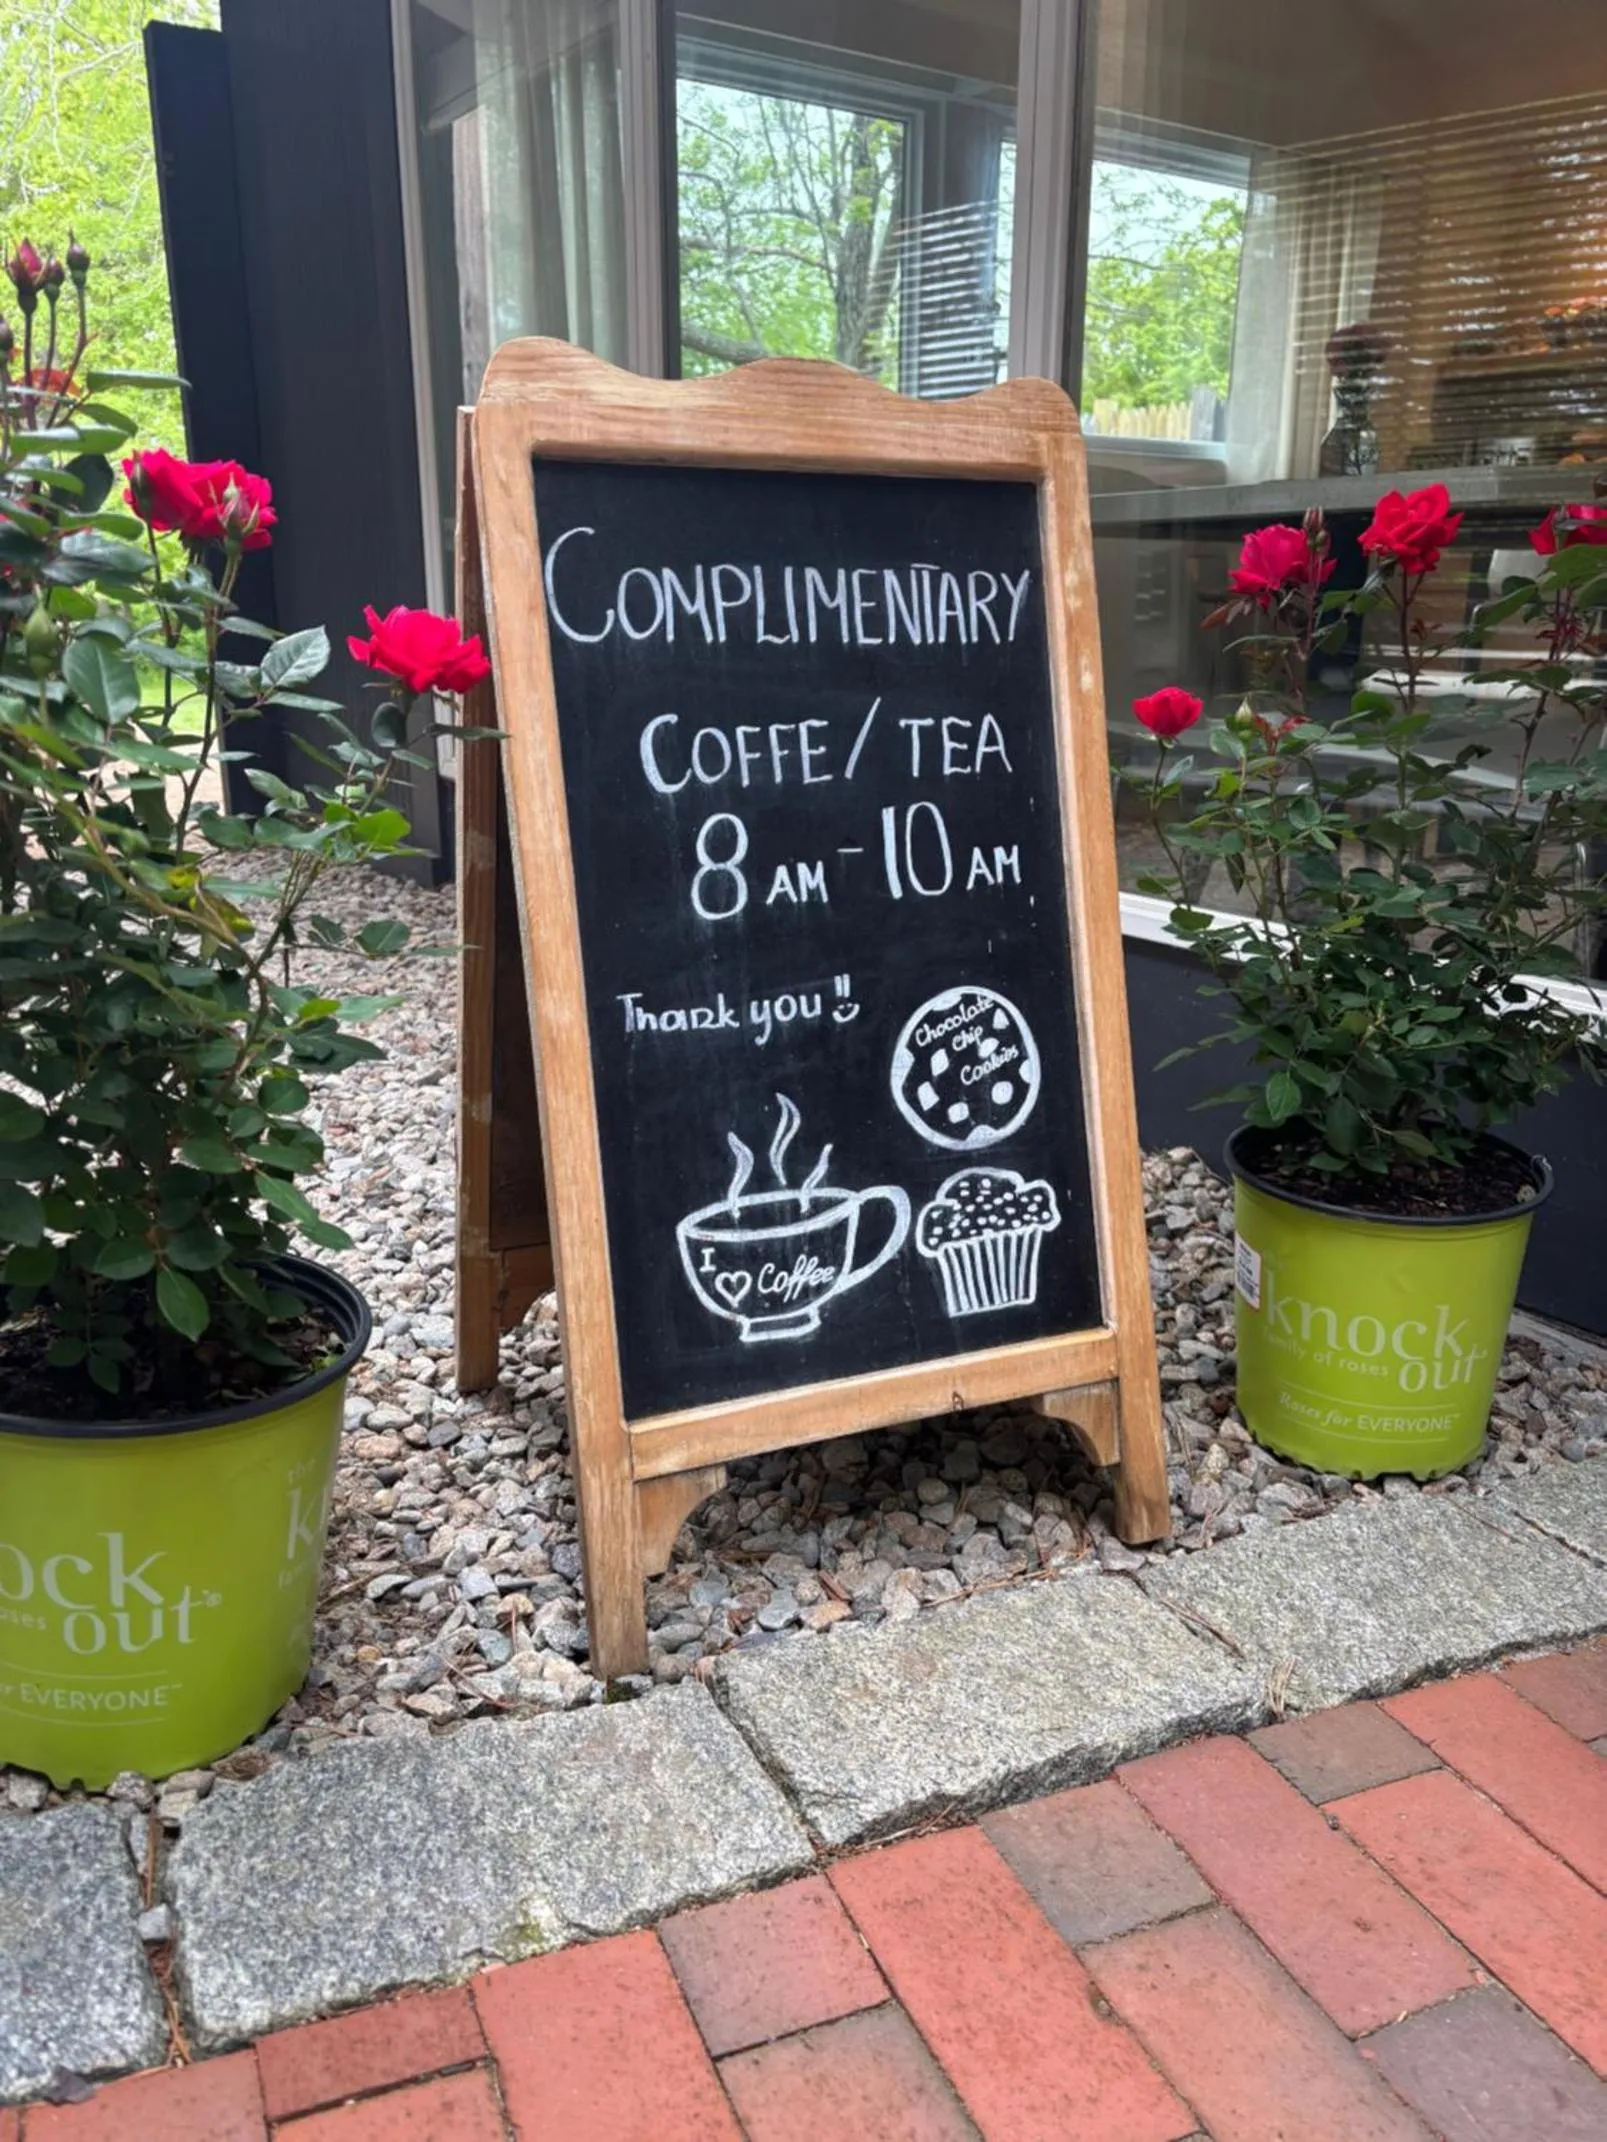 COMPLIMENTARY
COFFE / TEA
8 AM - 10 AM
Thank you!!
Chocolate
Chip
Cookies
I
♡ Coffee
knock
family of roses
out
Roses for EVERYONE™
the
ock
oses
out®
r EVERYONE™